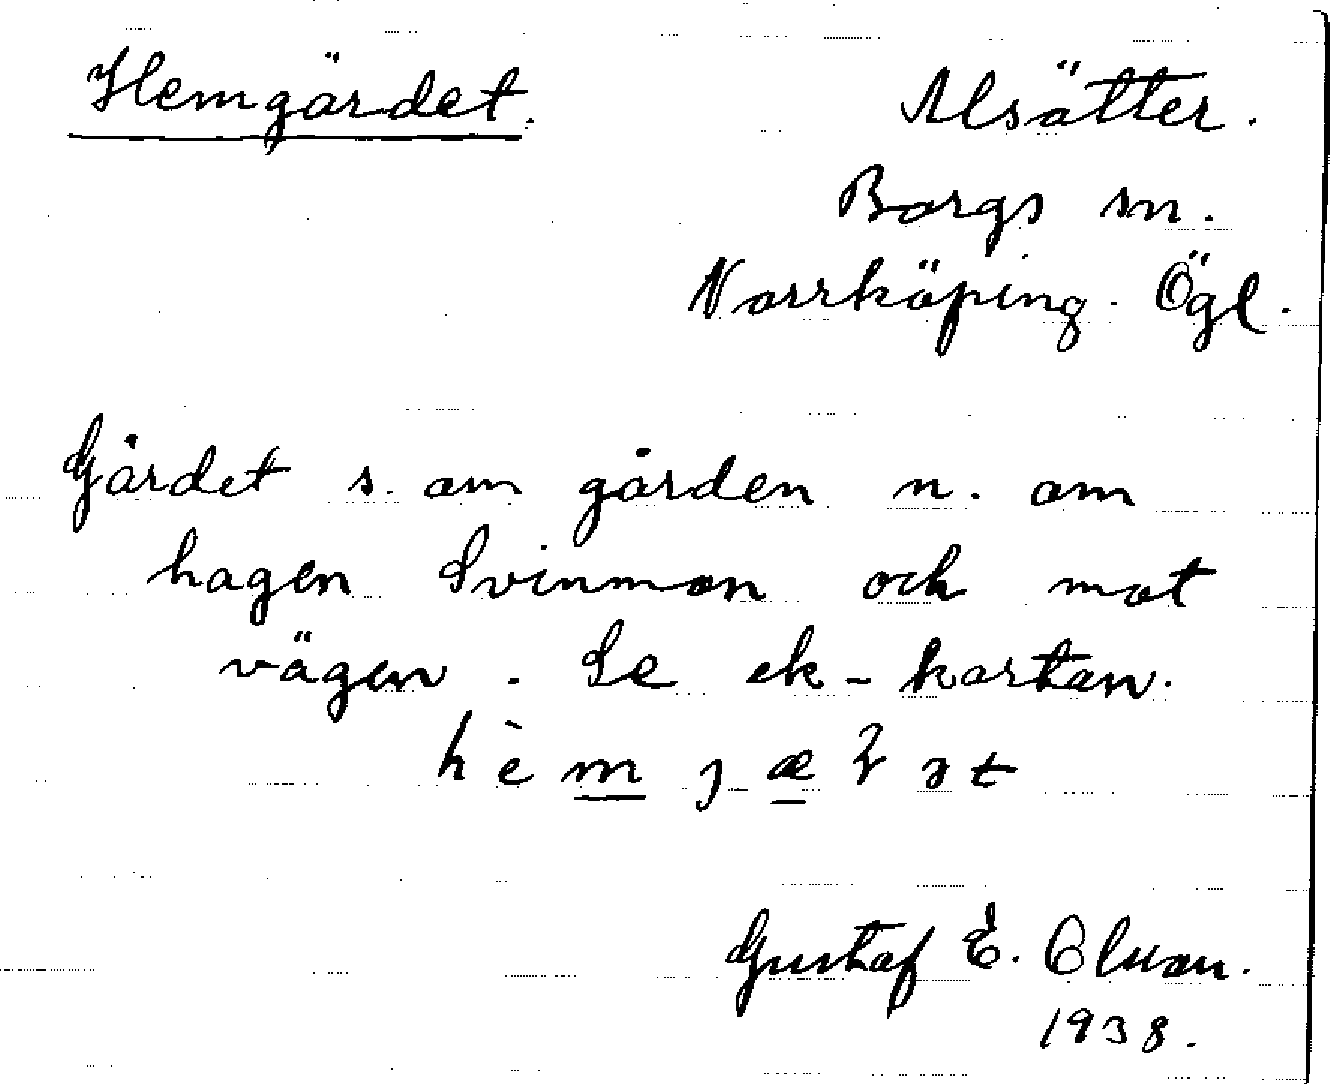 Hemgärdet.
Alsätter.
Borgs sn.
Norrköping. Ögl.
Gärdet s. om gården n. om
hagen Svinmon och mot
vägen. Se ek-kartan.
Gustaf E. Olsson.
1938.